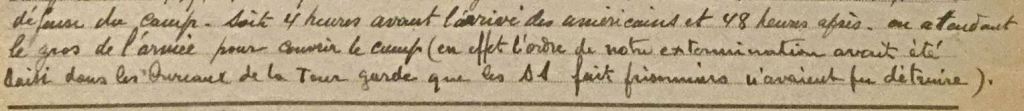 défense du camp. Soit 4 heures avant l'arrivé des américains et 48 heures après. en attendant
le gros de l'armée pour couvrir le camp (en effet l'ordre de notre extermination avait été
saisi dans les bureaux de la Tour garde que les SS fait prisonniers n'avaient pu détruire).